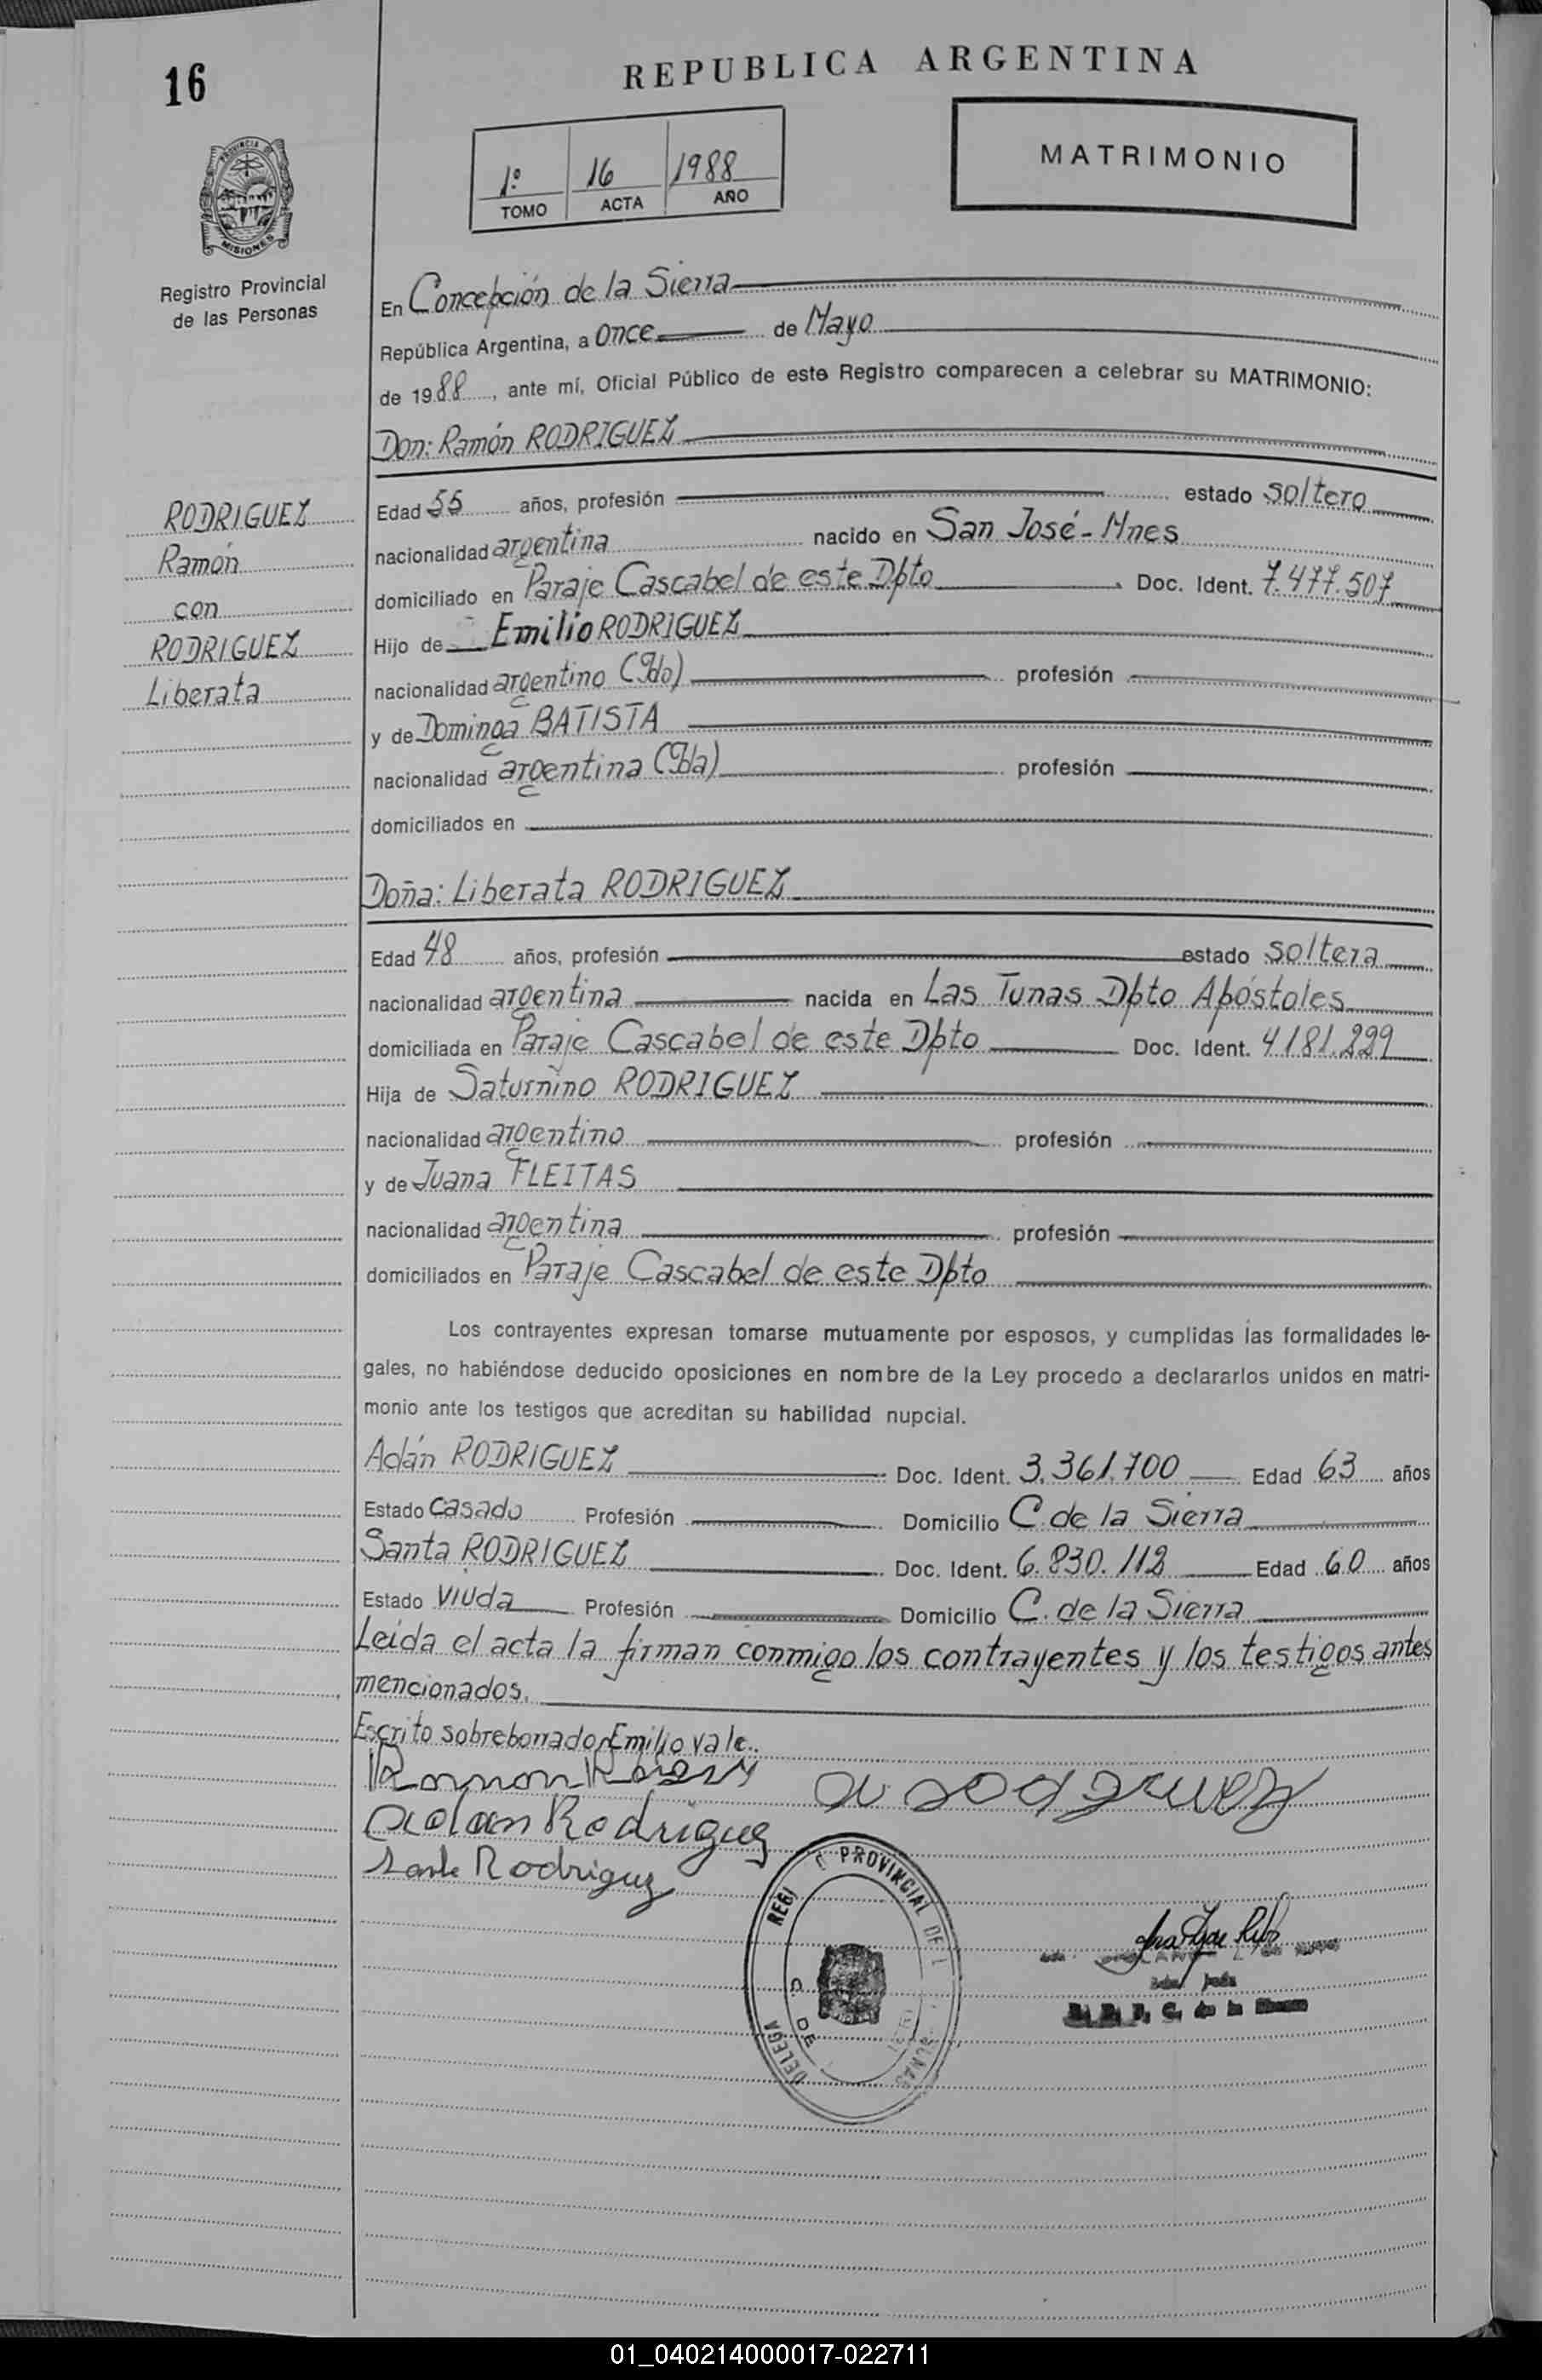 16
REPUBLICA ARGENTINA
MATRIMONIO
1º 16 1988
TOMO ACTA AÑO
PROVINCIA DE
MISIONES
Registro Provincial
de las Personas
En Concepción de la Sierra
República Argentina, a once de Mayo
de 1988, ante mí, Oficial Público de este Registro comparecen a celebrar su MATRIMONIO:
Don: Ramón RODRIGUEZ
RODRIGUEZ
Ramón
con
RODRIGUEZ
Liberata
Edad 55 años, profesión estado soltero
nacionalidad argentina nacido en San José - Mnes
domiciliado en Paraje Cascabel de este Dpto Doc. Ident. 7.477.507
Hijo de Emilio RODRIGUEZ
nacionalidad argentino (Fdo) profesión
y de Dominga BATISTA
nacionalidad argentina (Fda) profesión
domiciliados en
Doña: Liberata RODRIGUEZ
Edad 48 años, profesión estado soltera
nacionalidad argentina nacida en Las Tunas Dpto Apóstoles
domiciliada en Paraje Cascabel de este Dpto Doc. Ident. 4181.299
Hija de Saturnino RODRIGUEZ
nacionalidad argentino profesión
y de Juana FLEITAS
nacionalidad argentina profesión
domiciliados en Paraje Cascabel de este Dpto
Los contrayentes expresan tomarse mutuamente por esposos, y cumplidas las formalidades le-
gales, no habiéndose deducido oposiciones en nombre de la Ley procedo a declararlos unidos en matri-
monio ante los testigos que acreditan su habilidad nupcial.
Adán RODRIGUEZ Doc. Ident. 3.361.700 Edad 63 años
Estado casado Profesión Domicilio C. de la Sierra
Santa RODRIGUEZ Doc. Ident. 6.830.112 Edad 60 años
Estado viuda Profesión Domicilio C. de la Sierra
Leida el acta la firman conmigo los contrayentes y los testigos antes
mencionados.
Escrito sobreborrado: Emilio vale.
Adan Rodriguez
Rodriguez
PROVINCIAL DE
C. de la Sierra
01_040214000017-022711